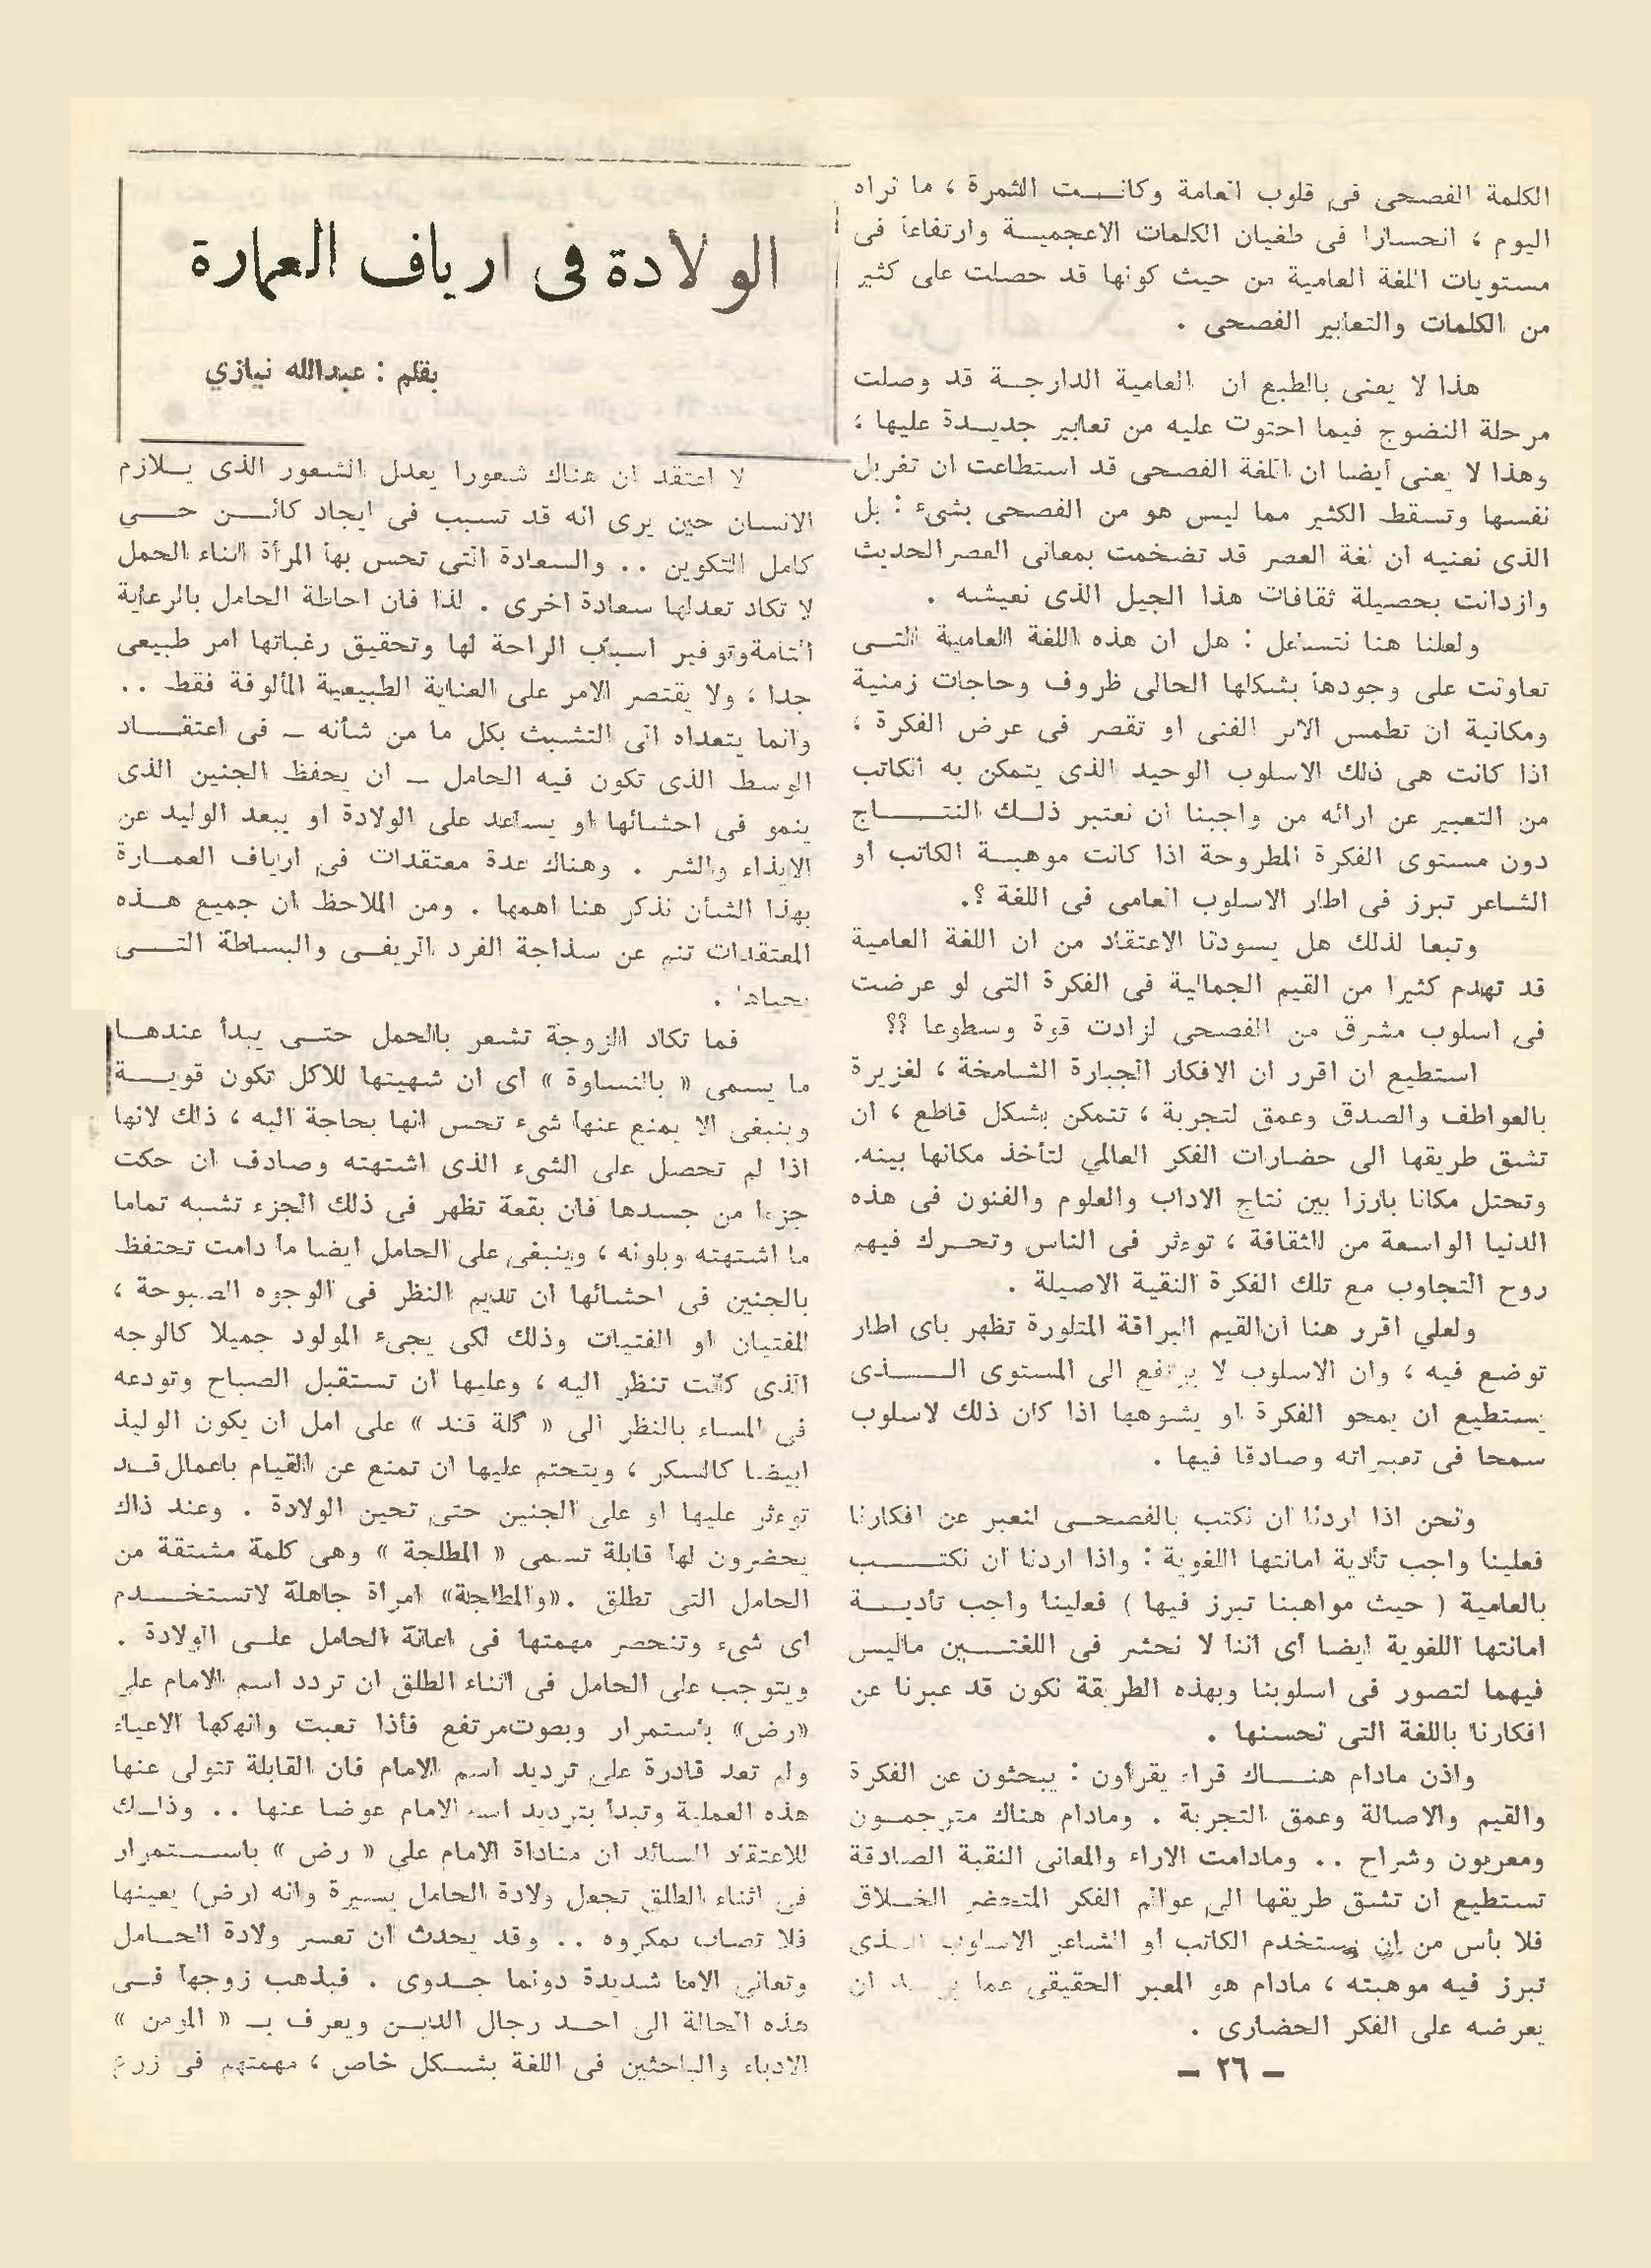 الكلمة الفصحى فى قلوب العامة وكانــت الثمرة ، ما نراه
اليوم ، انحسارا فى طغيان الكلمات الاعجميــة وارتفاعا فى
مستويات اللغة العامية من حيث كونها قد حصلت على كثير
من الكلمات والتعابير الفصحى .
هذا لا يعنى بالطبع ان العامية الدارجــة قد وصلت
مرحلة النضوج فيما احتوت عليه من تعابير جديــدة عليها ؛
وهذا لا يعنى أيضا ان اللغة الفصحى قد استطاعت ان تغربل
نفسها وتسقط الكثير مما ليس هو من الفصحى بشىء : بل
الذى نعنيه ان لغة العصر قد تضخمت بمعانى العصرالحديث
وازدانت بحصيلة ثقافات هذا الجيل الذى نعيشه .
ولعلنا هنا نتساءل : هل ان هذه اللغة العامية التــى
تعاونت على وجودها بشكلها الحالى ظروف وحاجات زمنية
ومكانية ان تطمس الاثر الفنى او تقصر فى عرض الفكرة ؛
اذا كانت هى ذلك الاسلوب الوحيد الذى يتمكن به الكاتب
من التعبير عن ارائه من واجبنا ان نعتبر ذلــك النتــــاج
دون مستوى الفكرة المطروحة اذا كانت موهبــة الكاتب او
الشاعر تبرز فى اطار الاسلوب العامى فى اللغة ؟.
وتبعا لذلك هل يسودنا الاعتقاد من ان اللغة العامية
قد تهدم كثيرا من القيم الجمالية فى الفكرة التى لو عرضت
فى اسلوب مشرق من الفصحى لزادت قوة وسطوعا ؟؟
استطيع ان اقرر ان الافكار الجبارة الشامخة ، لغزيرة
بالعواطف والصدق وعمق لتجربة ، تتمكن بشكل قاطع ، ان
تشق طريقها الى حضارات الفكر العالمي لتأخذ مكانها بينه.
وتحتل مكانا بارزا بين نتاج الاداب والعلوم والفنون فى هذه
الدنيا الواسعة من للثقافة ، توءثر فى الناس وتحــرك فيهم
روح التجاوب مع تلك الفكرة النقية الاصيلة .
ولعلي اقرر هنا ان القيم البراقة المتلورة تظهر باى اطار
توضع فيه ، وان الاسلوب لا يرتفع الى المستوى الــــذى
يستطيع ان يمحو الفكرة او يشوهها اذا كان ذلك لاسلوب
سمحا فى تعبيراته وصادقا فيها .
ونحن اذا اردنا ان نكتب بالفصحــى لنعبر عن افكارنا
فعلينا واجب تأدية امانتها اللغوية : واذا اردنا ان نكتــــب
بالعامية ( حيث مواهبنا تبرز فيها ) فعلينا واجب تأديــة
امانتها اللغوية ايضا أى اننا لا نحشر فى اللغتــــين ماليس
فيهما لتصور فى اسلوبنا وبهذه الطريقة نكون قد عبرنا عن
افكارنا باللغة التى نحسنها .
واذن مادام هنـــاك قراء يقرأون : يبحثون عن الفكرة
والقيم والاصالة وعمق التجربة . ومادام هناك مترجمــون
ومعربون وشراح .. ومادامت الاراء والمعانى النقية الصادقة
تستطيع ان تشق طريقها الى عوالم الفكر المتحضر الخــلاق
فلا بأس من ان يستخدم الكاتب أو الشاعر الاسلوب الــذى
تبرز فيه موهبته ، مادام هو المعبر الحقيقى عما يريد ان
يعرضه على الفكر الحضارى .
الولادة فى ارياف العمارة
بقلم : عبدالله نيازي
لا اعتقد ان هناك شعورا يعدل الشعور الذى يــلازم
الانسان حين يرى انه قد تسبب فى ايجاد كائـــن حـــي
كامل التكوين .. والسعادة التى تحس بها المرأة اثناء الحمل
لا تكاد تعدلها سعادة اخرى . لذا فان احاطة الحامل بالرعاية
التامةوتوفير اسباب الراحة لها وتحقيق رغباتها امر طبيعى
جدا ؛ ولا يقتصر الامر على العناية الطبيعية المألوفة فقط ..
وانما يتعداه الى التشبث بكل ما من شأنه ــ فى اعتقــاد
الوسط الذى تكون فيه الحامل ــ ان يحفظ الجنين الذى
ينمو فى احشائها او يساعد على الولادة او يبعد الوليد عن
الايذاء والشر . وهناك عدة معتقدات فى ارياف العمــارة
بهذا الشأن نذكر هنا اهمها . ومن الملاحظ ان جميع هــذه
المعتقدات تنم عن سذاجة الفرد الريفــى والبساطة التــــى
يحياها .
فما تكاد الزوجة تشعر بالحمل حتــى يبدأ عندهــا
ما يسمى « بالنساوة » أى ان شهيتها للاكل تكون قويــــة
وينبغى الا يمنع عنها شىء تحس انها بحاجة اليه ، ذلك لانها
اذا لم تحصل على الشىء الذى اشتهته وصادف ان حكت
جزءا من جسدها فان بقعة تظهر فى ذلك الجزء تشبه تماما
ما اشتهته وبلونه ، وينبغى على الحامل ايضا ما دامت تحتفظ
بالجنين فى احشائها ان تديم النظر فى الوجوه الصبوحة ،
للفتيان او الفتيات وذلك لكى يجىء المولود جميلا كالوجه
الذى كانت تنظر اليه ، وعليها ان تستقبل الصباح وتودعه
فى المساء بالنظر الى « گلة قند » على امل ان يكون الوليد
ابيضا كالسكر ، ويتحتم عليها ان تمنع عن القيام باعمال قــد
توءثر عليها او على الجنين حتى تحين الولادة . وعند ذاك
يحضرون لها قابلة تسمى « المطلجة » وهى كلمة مشتقة من
الحامل التى تطلق . «والمطلجة» امرأة جاهلة لاتستخــــدم
اى شىء وتنحصر مهمتها فى اعانة الحامل علــى الولادة .
ويتوجب على الحامل فى اثناء الطلق ان تردد اسم الامام علي
«رض» بأستمرار وبصوت مرتفع فأذا تعبت وانهكها الاعياء
ولم تعد قادرة على ترديد اسم الامام فان القابلة تتولى عنها
هذه العملية وتبدأ بترديد اسم الامام عوضا عنها .. وذلــك
للاعتقاد السائد ان مناداة الامام علي « رض » باســــتمرار
فى اثناء الطلق تجعل ولادة الحامل يسيرة وانه (رض) يعينها
فلا تصاب بمكروه .. وقد يحدث ان تعسر ولادة الحــامل
وتعانى الاما شديدة دونما جــدوى . فيذهب زوجها فــى
هذه الحالة الى احــد رجال الديــن ويعرف بـ « المومن »
الادباء والباحثين فى اللغة بشــكل خاص ، مهمتهم فى زرع
– ٢٦ –